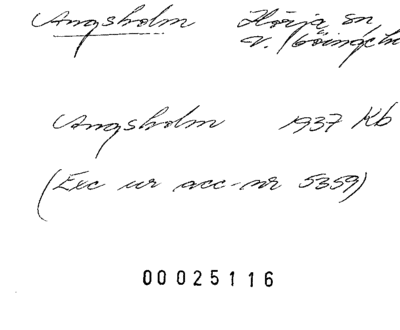 Ängsholm Hörja sn
V. Göinge h
Ängsholm 1937 Kb
(Exc ur acc-nr 5359)
00025116